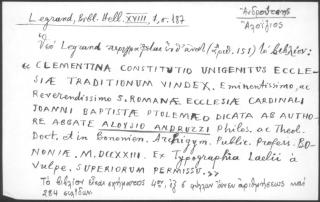 Legrand, Bibl. Hell. XVIII, 1, σ. 187
Ἀνδρούτσης
Ἀλοΐσιος
Ὑπὸ Legrand περιγράφεται ὑπ' ἀριθ. (ἀρθ. 151) τὸ βιβλίον:
« CLEMENTINA CONSTITUTIO UNIGENITUS ECCLE-
SIÆ TRADITIONUM VINDEX. Eminentissimo, ac
Reverendissimo S. ROMANÆ ECCLESIÆ CARDINALI
JOANNI BAPTISTÆ PTOLEMÆO DICATA AB AUTHO-
RE ABBATE ALOYSIO ANDRUZZI Philos. ac Theol.
Doct. et in Bononien. Archigym. Public. Profess. BO-
NONIÆ. M.DCCXXIII. Ex Typographia Laelii a
Vulpe. SUPERIORUM PERMISSU. »
Τὸ βιβλίον εἶναι σχήματος 4ον, ἐξ 6 φύλλων ἄνευ ἀριθμήσεως καὶ
284 σελίδων